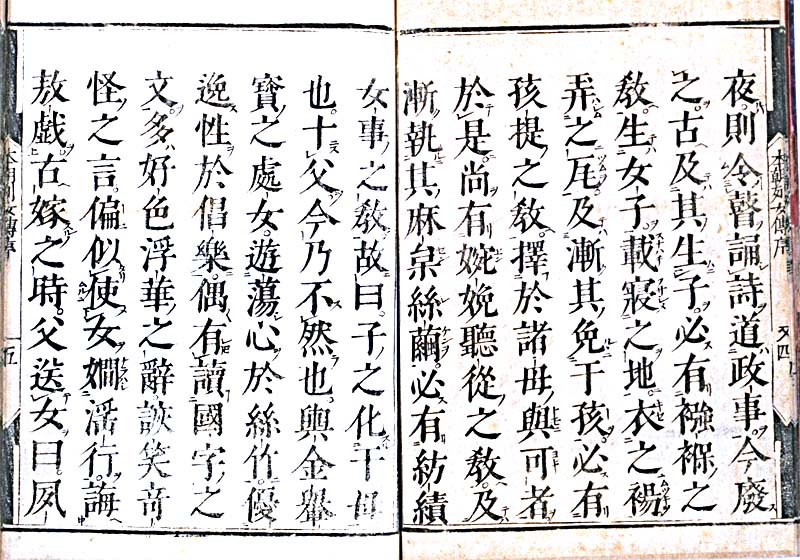 夜則令瞽誦詩道政事今廢
之古及其生子必有襁褓之
敎生女子載寢之地衣之裼
弄之瓦及漸其免于孩必有
孩提之敎擇於諸母與可者
於是尚有婉娩聽從之敎及
漸執其麻枲絲繭必有紡績
女事之敎故曰子之化干母
也十父今乃不然也輿金轝
寶之處女遊蕩心於絲竹優
逸性於倡樂偶有讀國字之
文多好色浮華之辭詼笑奇
怪之言偏似使女嫺滛行誨
敖戲古嫁之時父送女曰夙
本朝列女傳序 五